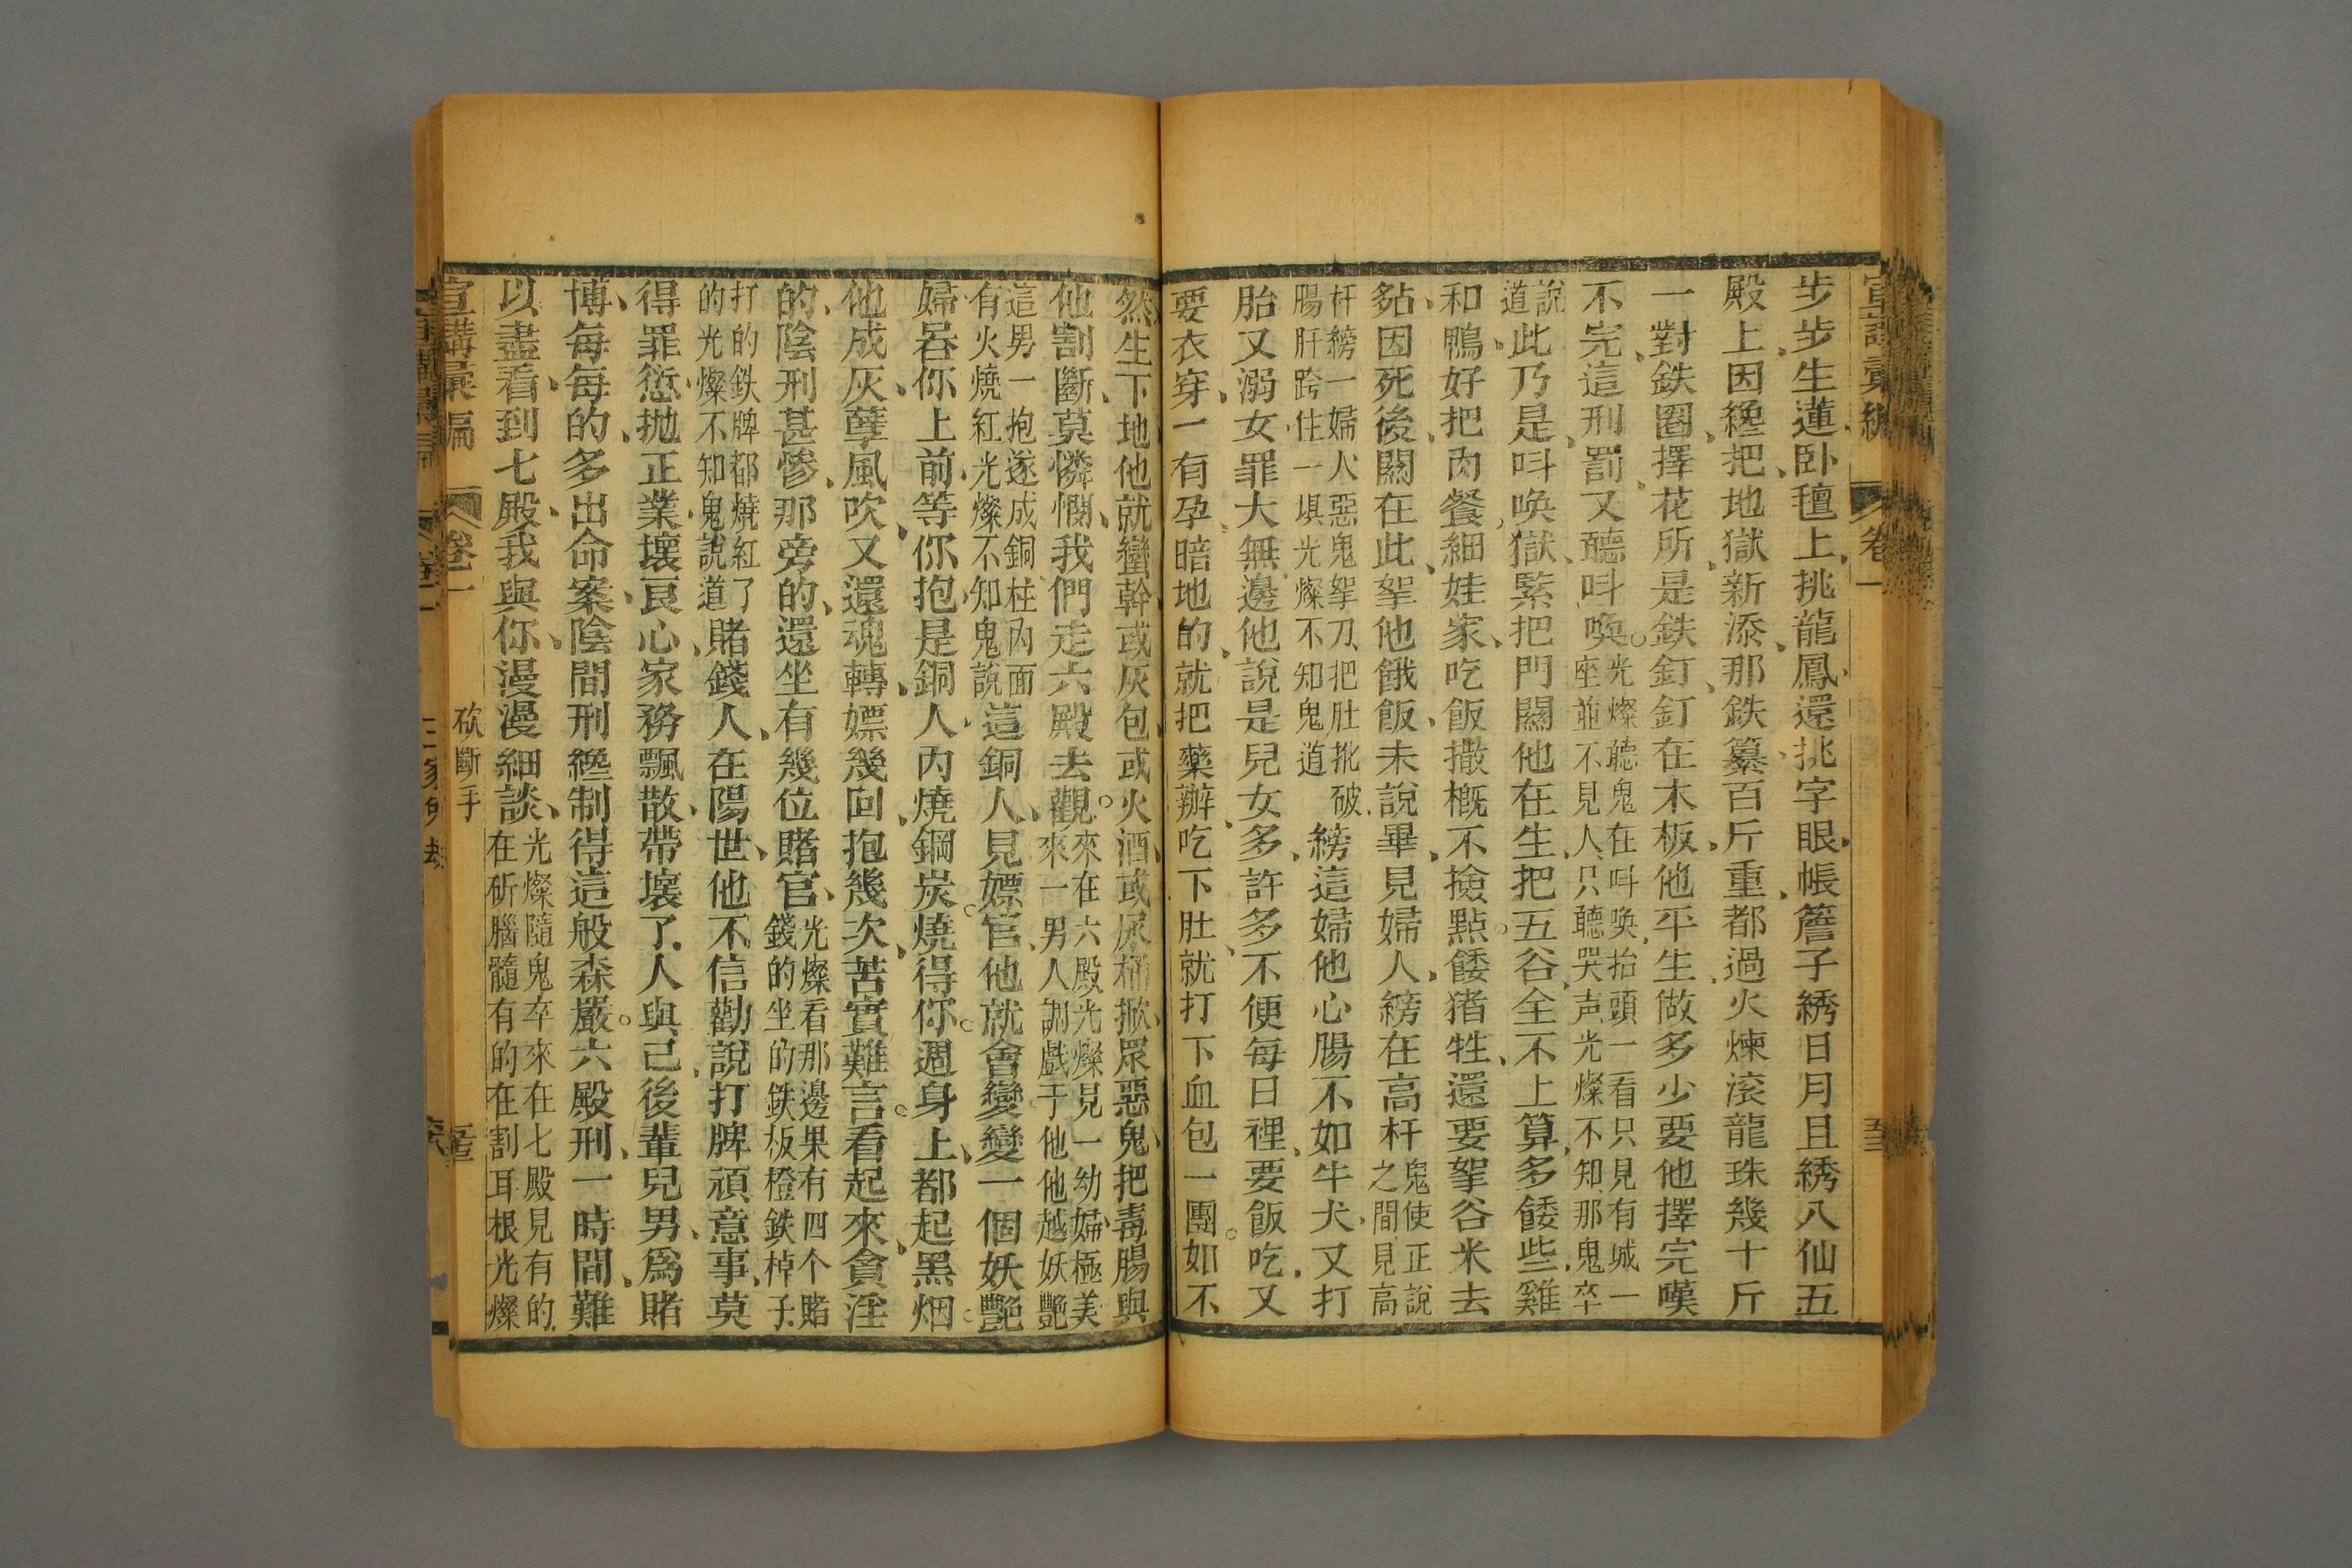 宣講彙編 卷一
步步生蓮卧氊上挑龍鳳還挑字眼帳簷子綉日月且綉八仙五
殿上因纔把地獄新添那鉄纂百斤重都過火煉滾龍珠幾十斤
一對鉄圈擇花所是鉄釘釘在木板他平生做多少要他擇完嘆
不完這刑罰又聽呌喚。光燦聽鬼在呌喚抬頭一看只見有城一座並不見人只聽哭声光燦不知那鬼卒
說道此乃是呌喚獄緊把門關他在生把五谷全不上算多餧些雞
和鴨好把肉餐細娃家吃飯撒概不撿點。餧猪牲還要挐谷米去
䴴因死後關在此挐他餓飯未說畢見婦人綁在高杆鬼使正說之間見高
杆綁一婦人惡鬼挐刀把肚批破腸肝跨住一塤光燦不知鬼道綁這婦他心腸不如牛犬又打
胎又溺女罪大無邊他說是兒女多許多不便每日裡要飯吃又
要衣穿一有孕暗地的就把藥辦吃下肚就打下血包一團。如不
然生下地他就蠻幹或灰包或火酒或尿桶掀眾惡鬼把毒腸與
他割斷莫憐憫我們走六殿去觀。來在六殿光燦見一幼婦極美來一男人調戲于他他越妖艷
這男一抱遂成銅柱內面有火燒紅光燦不知鬼說這銅人見嫖官他就會變變一個妖艷
婦呑你上前等你抱是銅人內燒鋼炭。燒得你。週身上都起黑烟。
他成灰孽風吹又還魂轉嫖幾回抱幾次苦實難言。看起來貪淫
的陰刑甚慘那旁的還坐有幾位賭官光燦看那邊果有四个賭錢的坐的鉄板橙鉄棹子
打的鉄牌都燒紅了的光燦不知鬼說道賭錢人在陽世他不信勸說打牌頑意事莫
得罪愆抛正業壞良心家務飄散帶壞了人與己後輩兒男爲賭
博每每的多出命案陰間刑纔制得這般森嚴。六殿刑一時間難
以盡看到七殿我與你漫漫細談光燦隨鬼卒來在七殿見有的在斫腦髓有的在割耳根光燦
宣講彙編 卷一
砍斷手